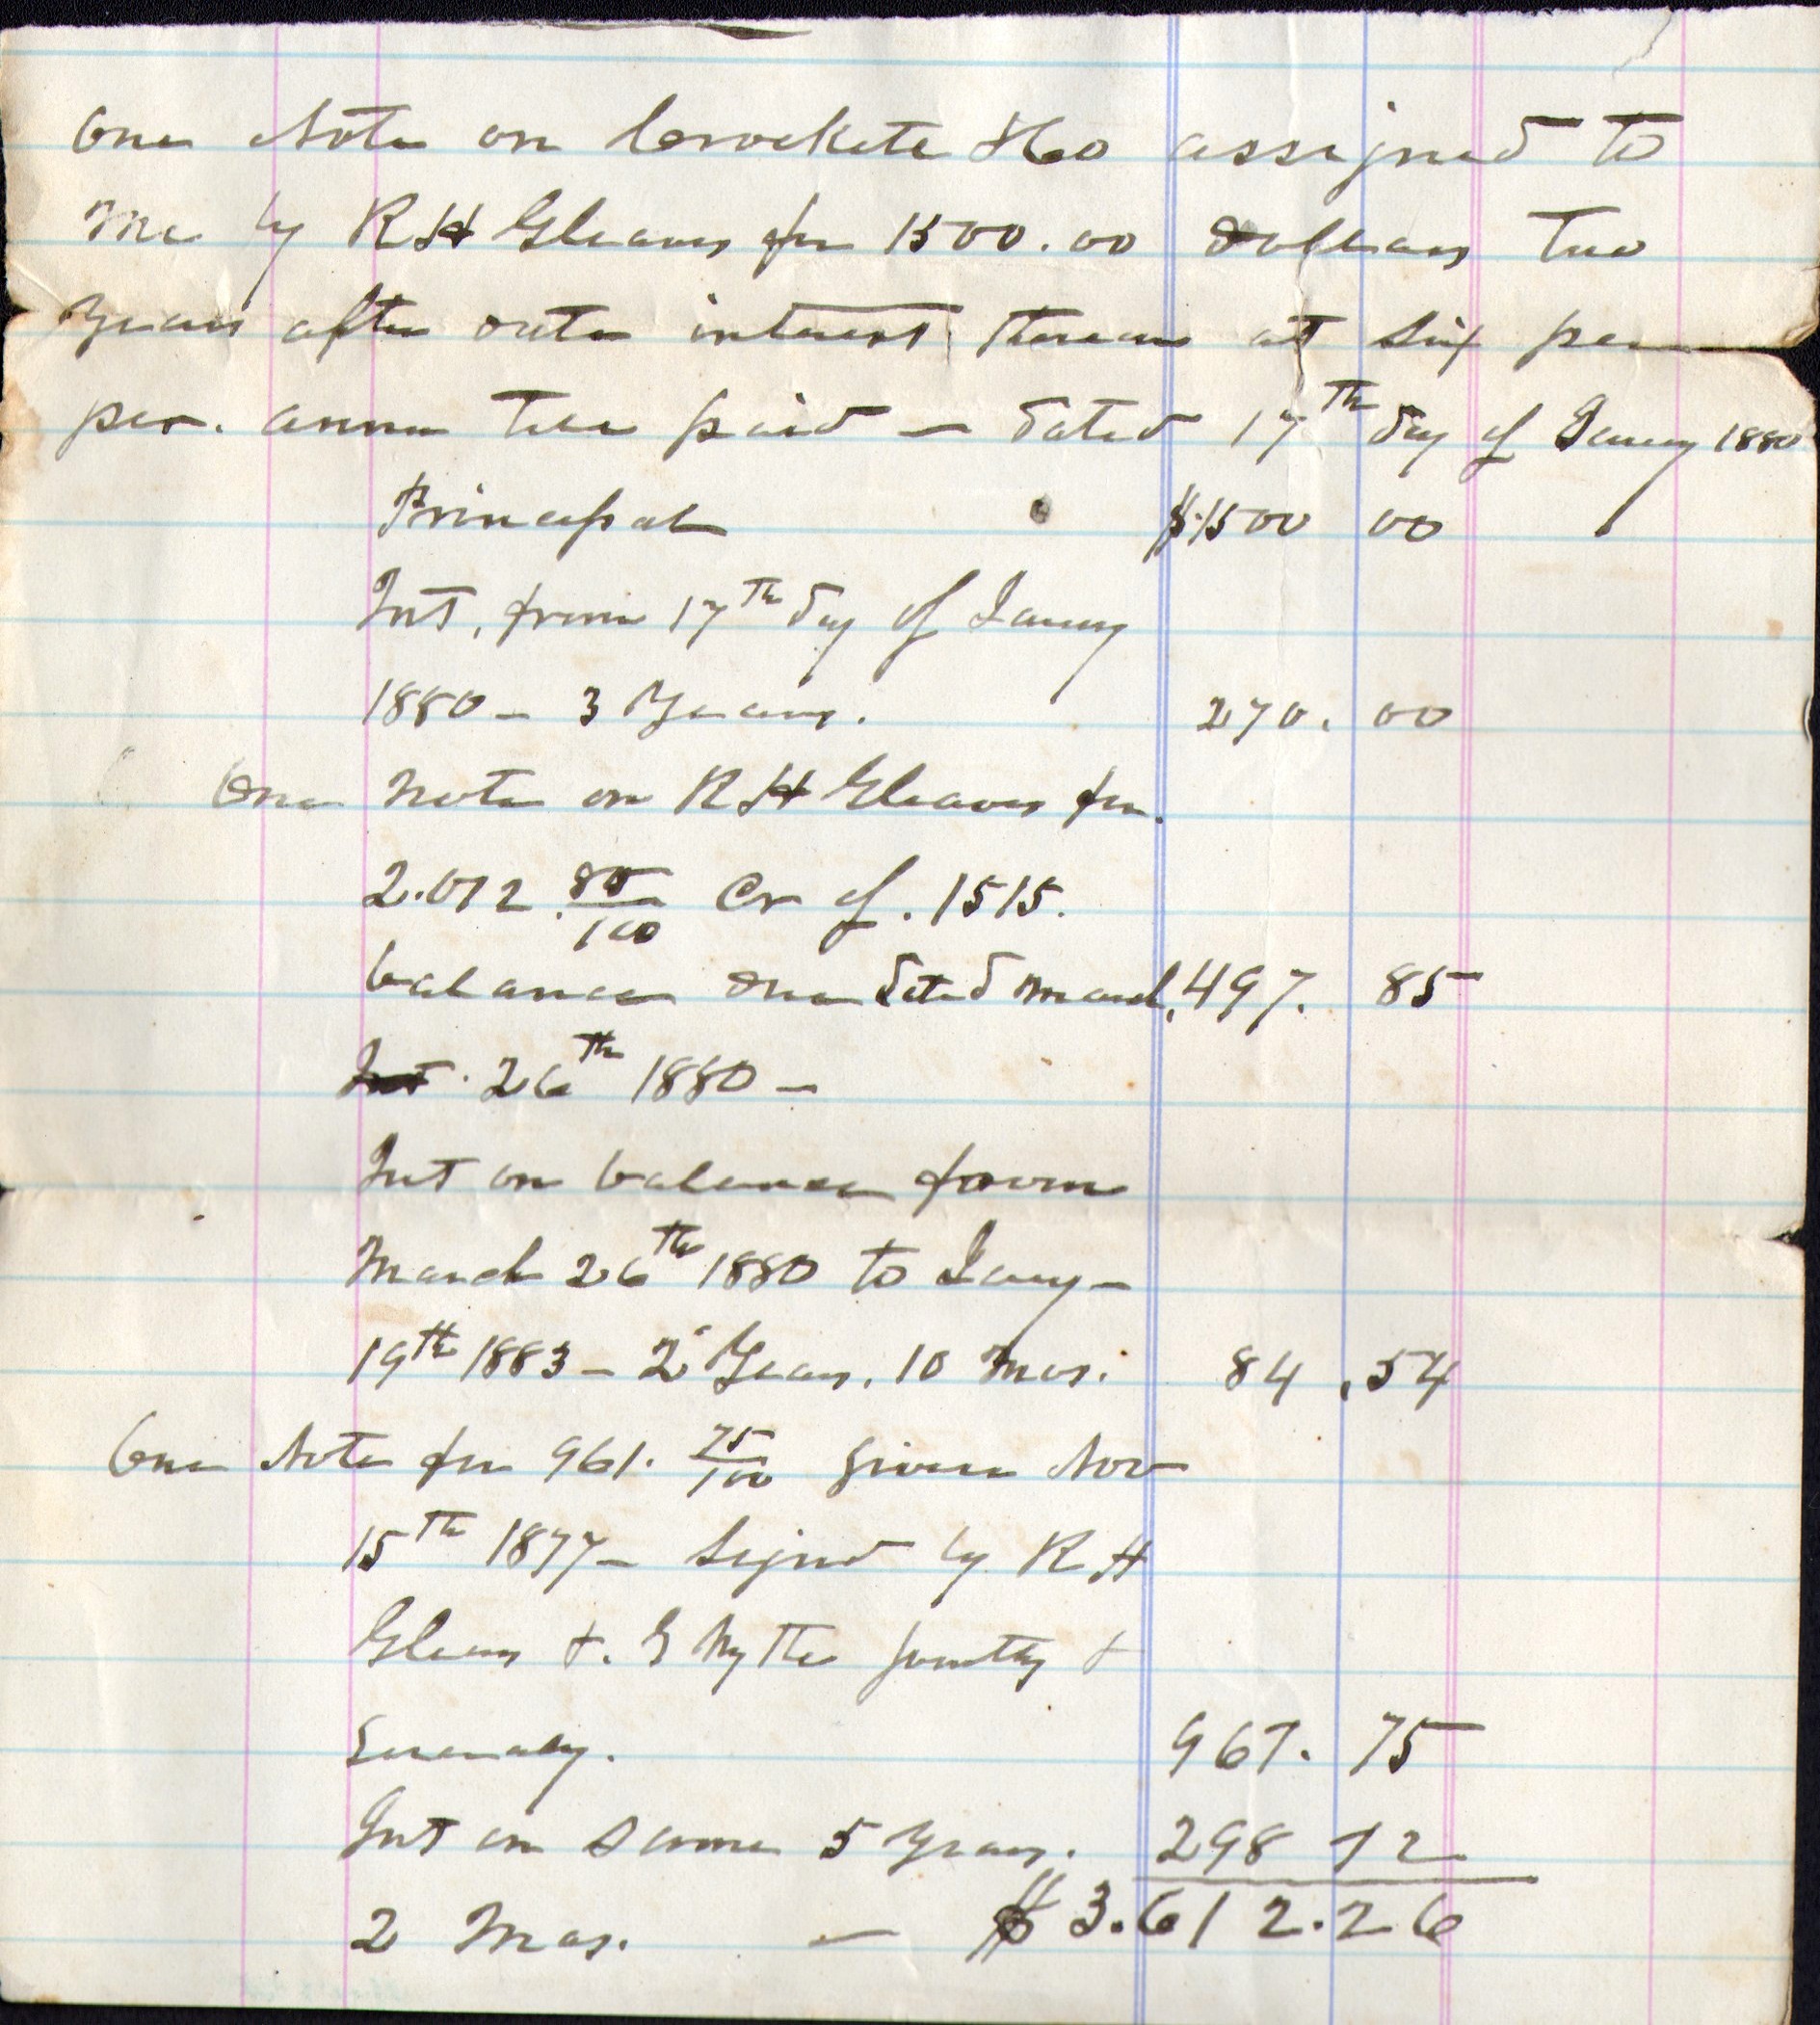 One Note on Crockett & Co assigned to
me by R H Gleaves for 1500.00 Dollars Two
Years after date interest thereon at six per
per. annum till paid — dated 17th day of Jany 1880
Principal $1500 00
Int, from 17th day of Jany
1880 — 3 Years. 270. 00
One Note on R H Gleaves for.
2.012 85/100 Cr of. 1515.
balance due dated March, 497. 85
26th 1880 —
Int on balance from
March 26th 1880 to Jany —
19th 1883 — 2 Years. 10 Mos. 84.54
One Note for 961. 75/100 given Nov
15th 1877 — Signed by R H
Gleaves & G Wythe jointly &
Severally. 961. 75
Int on Same 5 Years. 298 12
2 Mos. — $3.612.26